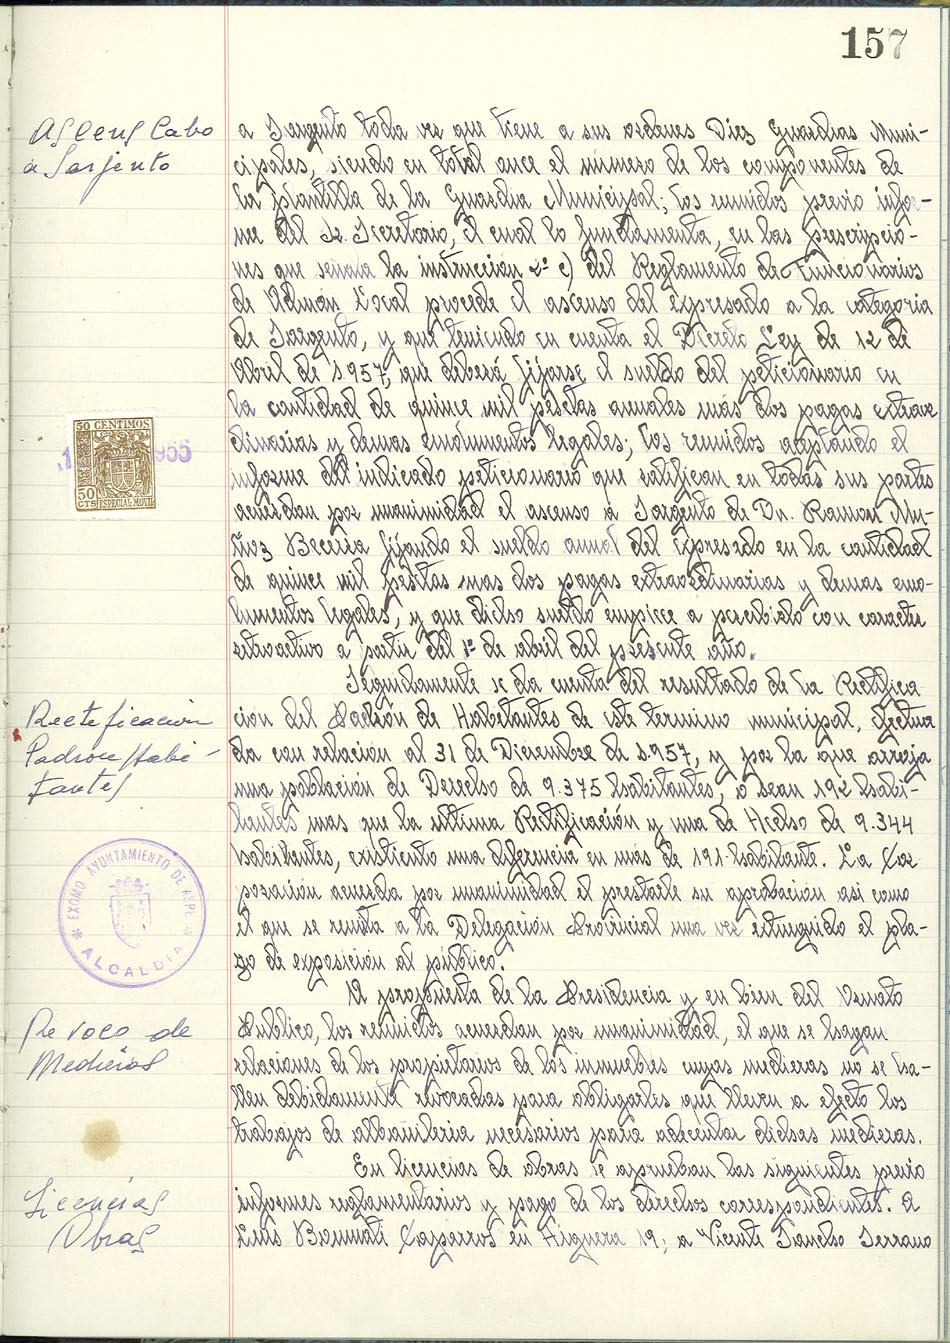 157
Ascens Cabo
a Sargento
a Sargento toda vez que tiene a sus ordenes Diez Guardias Muni-
cipales, siendo en total once el número de los componentes de
la plantilla de la Guardia Municipal; los reunidos previo infor-
me del Sr. Secretario, el cual lo fundamenta, en las prescripcio-
nes que señala la instrucción 2ª c) del Reglamento de Funcionarios
de Admón Local procede el ascenso del expresado a la categoria
de Sargento, y que teniendo en cuenta el Decreto Ley de 12 de
Abril de 1957, que deberá fijarse el sueldo del peticionario en
la cantidad de quince mil pesetas anuales más dos pagas extraor
dinarias y demas emolumentos legales; los reunidos aceptando el
informe del indicado peticionario que ratifican en todas sus partes
acuerdan por unanimidad el ascenso a Sargento de Dn. Ramon Mu-
ñoz Becerra fijando el sueldo anual del expresado en la cantidad
de quince mil pesetas mas dos pagas extraordinarias y demas emo-
lumentos legales, y que dicho sueldo empiece a percibirlo con caracter
retroactivo a partir del 1º de abril del presente año.
50 CENTIMOS
50
CTS ESPECIAL MOVIL
1955
Rectificacion
Padron Habi-
tantes
Seguidamente se da cuenta del resultado de la Rectifica
ción del Padrón de Habitantes de este termino municipal, efectua
da con relacion al 31 de Diciembre de 1957, y por la que arroja
una población de Derecho de 9.375 habitantes, o sean 192 habi-
tantes mas que la ultima Rectificación y una de Hecho de 9.344
habitantes, existiento una diferencia en más de 191 habitante. La Cor
poración acuerda por unanimidad el prestarle su aprobación asi como
el que se remita a la Delegación Provincial una vez extinguido el pla-
zo de exposición al público.
EXCMO. AYUNTAMIENTO DE ASPE
* ALCALDIA *
Revoco de
Medieras
A propuesta de la Presidencia y en bien del Ornato
Publico, los reunidos acuerdan por unanimidad, el que se hagan
relaciones de los propietarios de los inmuebles cuyas medieras no se ha-
llen debidamente revocadas para obligarles que lleven a efecto los
trabajos de albañileria necesarios para adecentar dichas medieras.
Licencias
Obras
En licencias de obras se aprueban las siguientes previo
informes reglamentarios y pago de los derechos correspondientes. A
Luis Bonmati Caparros en Higuera 19; a Vicente Sancho Serrano